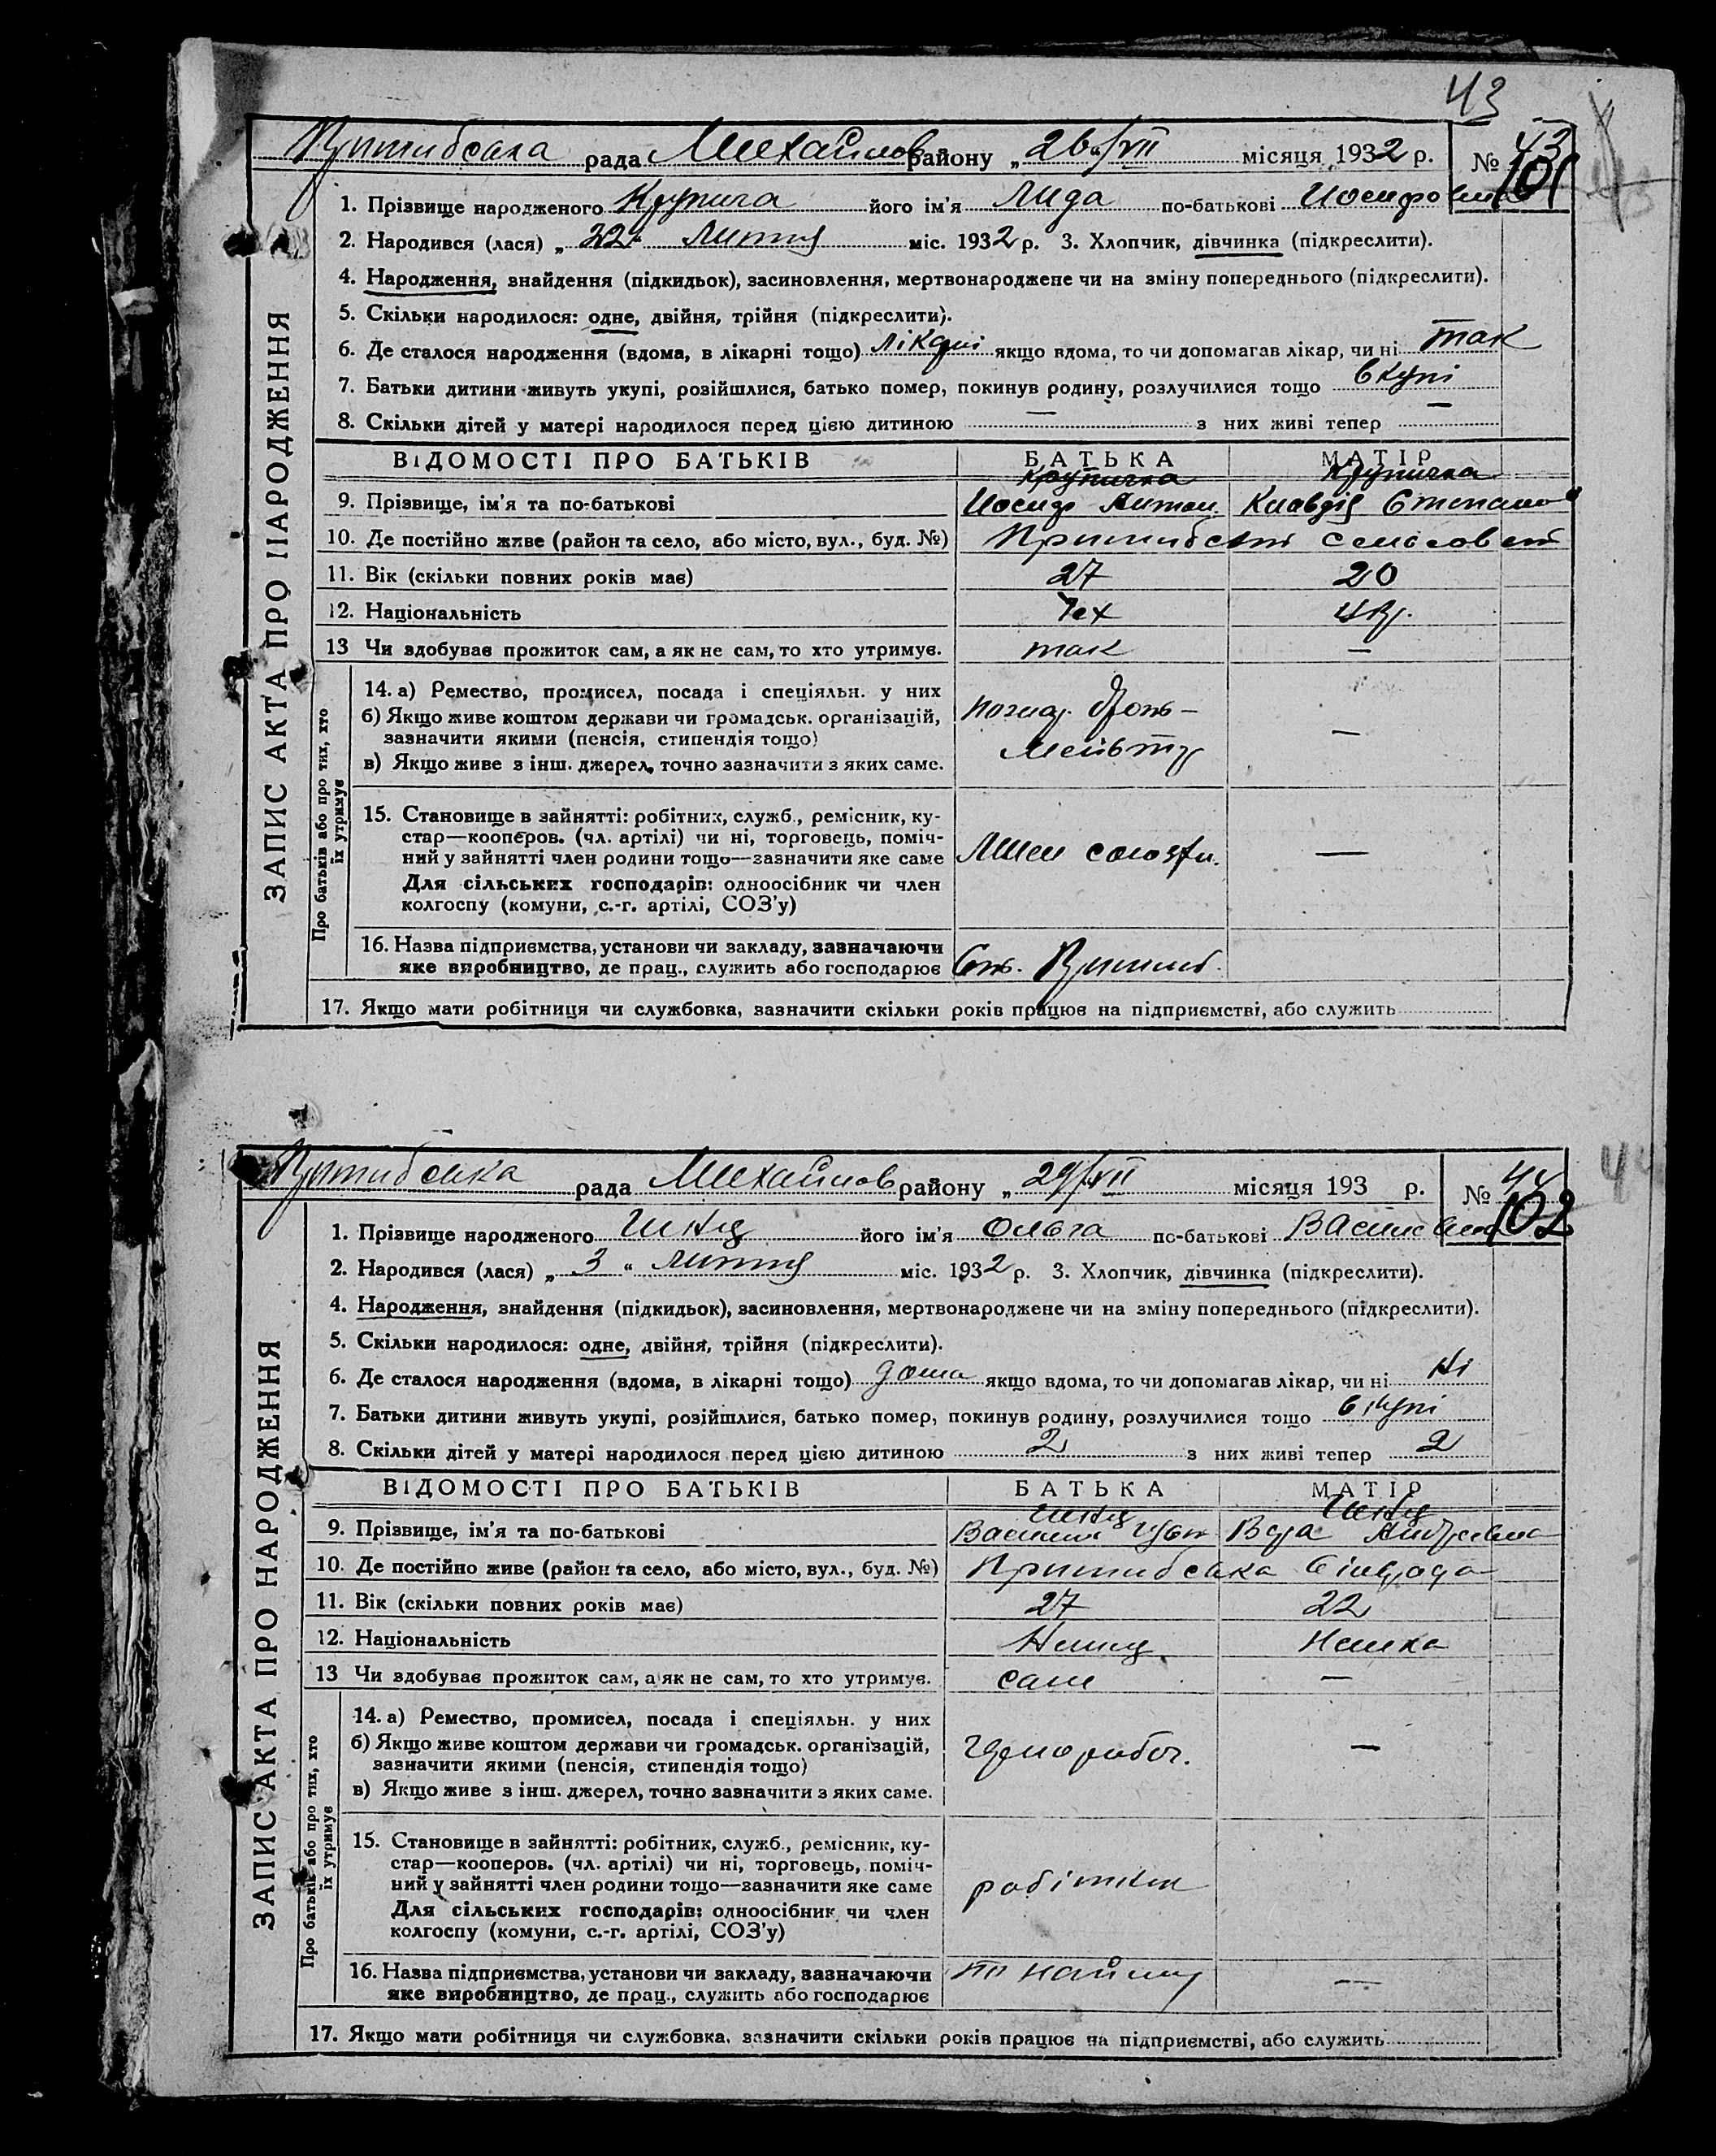 43
рада Михайлов району „26“/VII місяця 1932 р. № 43
101
1. Прізвище народженого його ім'я Лида по-батькові
2. Народився (лася) „22“ Липня міс. 1932 р. 3. Хлопчик, дівчинка (підкреслити).
4. Народження, знайдення (підкидьок), засиновлення, мертвонароджене чи на зміну попереднього (підкреслити).
5. Скільки народилося: одне, двійня, трійня (підкреслити).
6. Де сталося народження (вдома, в лікарні тощо) лікарні якщо вдома, то чи допомагав лікар, чи ні так
7. Батьки дитини живуть укупі, розійшлися, батько помер, покинув родину, розлучилися тощо вкупі
8. Скільки дітей у матері народилося перед цією дитиною — з них живі тепер —
ВІДОМОСТІ ПРО БАТЬКІВ БАТЬКА МАТІР
9. Прізвище, ім'я та по-батькові Иосиф Антон. Клавдія Степано
10. Де постійно живе (район та село, або місто, вул., буд. №)
11. Вік (скільки повних років має) 27 20
12. Національність Чех укр.
13 Чи здобуває прожиток сам, а як не сам, то хто утримує. так —
14. а) Ремество, промисел, посада і спеціяльн. у них
б) Якщо живе коштом держави чи громадськ. організацій,
зазначити якими (пенсія, стипендія тощо) —
в) Якщо живе з інш. джерел, точно зазначити з яких саме.
15. Становище в зайнятті: робітник, служб., ремісник, ку-
стар—кооперов. (чл. артілі) чи ні, торговець, поміч-
ний у зайнятті член родини тощо—зазначити яке саме —
Для сільських господарів: одноосібник чи член
колгоспу (комуни, с.-г. артілі, СОЗ'у)
16. Назва підприємства, установи чи закладу, зазначаючи
яке виробництво, де прац., служить або господарює
17. Якщо мати робітниця чи службовка, зазначити скільки років працює на підприємстві, або служить
ЗАПИС АКТА ПРО НАРОДЖЕННЯ
Про батьків або про тих, хто
їх утримує
рада Михайлов району „29“/VII місяця 193 р. № 44
102
1. Прізвище народженого його ім'я Ольга по-батькові
2. Народився (лася) „3“ Липня міс. 1932 р. 3. Хлопчик, дівчинка (підкреслити).
4. Народження, знайдення (підкидьок), засиновлення, мертвонароджене чи на зміну попереднього (підкреслити).
5. Скільки народилося: одне, двійня, трійня (підкреслити).
6. Де сталося народження (вдома, в лікарні тощо) дома якщо вдома, то чи допомагав лікар, чи ні ні
7. Батьки дитини живуть укупі, розійшлися, батько помер, покинув родину, розлучилися тощо вкупі
8. Скільки дітей у матері народилося перед цією дитиною 2 з них живі тепер 2
ВІДОМОСТІ ПРО БАТЬКІВ БАТЬКА МАТІР
9. Прізвище, ім'я та по-батькові Андреевна
10. Де постійно живе (район та село, або місто, вул., буд. №)
11. Вік (скільки повних років має) 27 22
12. Національність Немец Немка
13 Чи здобуває прожиток сам, а як не сам, то хто утримує. сам —
14. а) Ремество, промисел, посада і спеціяльн. у них
б) Якщо живе коштом держави чи громадськ. організацій, чорнороботч. —
зазначити якими (пенсія, стипендія тощо)
в) Якщо живе з інш. джерел, точно зазначити з яких саме.
15. Становище в зайнятті: робітник, служб., ремісник, ку-
стар—кооперов. (чл. артілі) чи ні, торговець, поміч-
ний у зайнятті член родини тощо—зазначити яке саме робітник
Для сільських господарів: одноосібник чи член
колгоспу (комуни, с.-г. артілі, СОЗ'у)
16. Назва підприємства, установи чи закладу, зазначаючи по найму —
яке виробництво, де прац., служить або господарює
17. Якщо мати робітниця чи службовка, зазначити скільки років працює на підприємстві, або служить
ЗАПИС АКТА ПРО НАРОДЖЕННЯ
Про батьків або про тих, хто
їх утримує